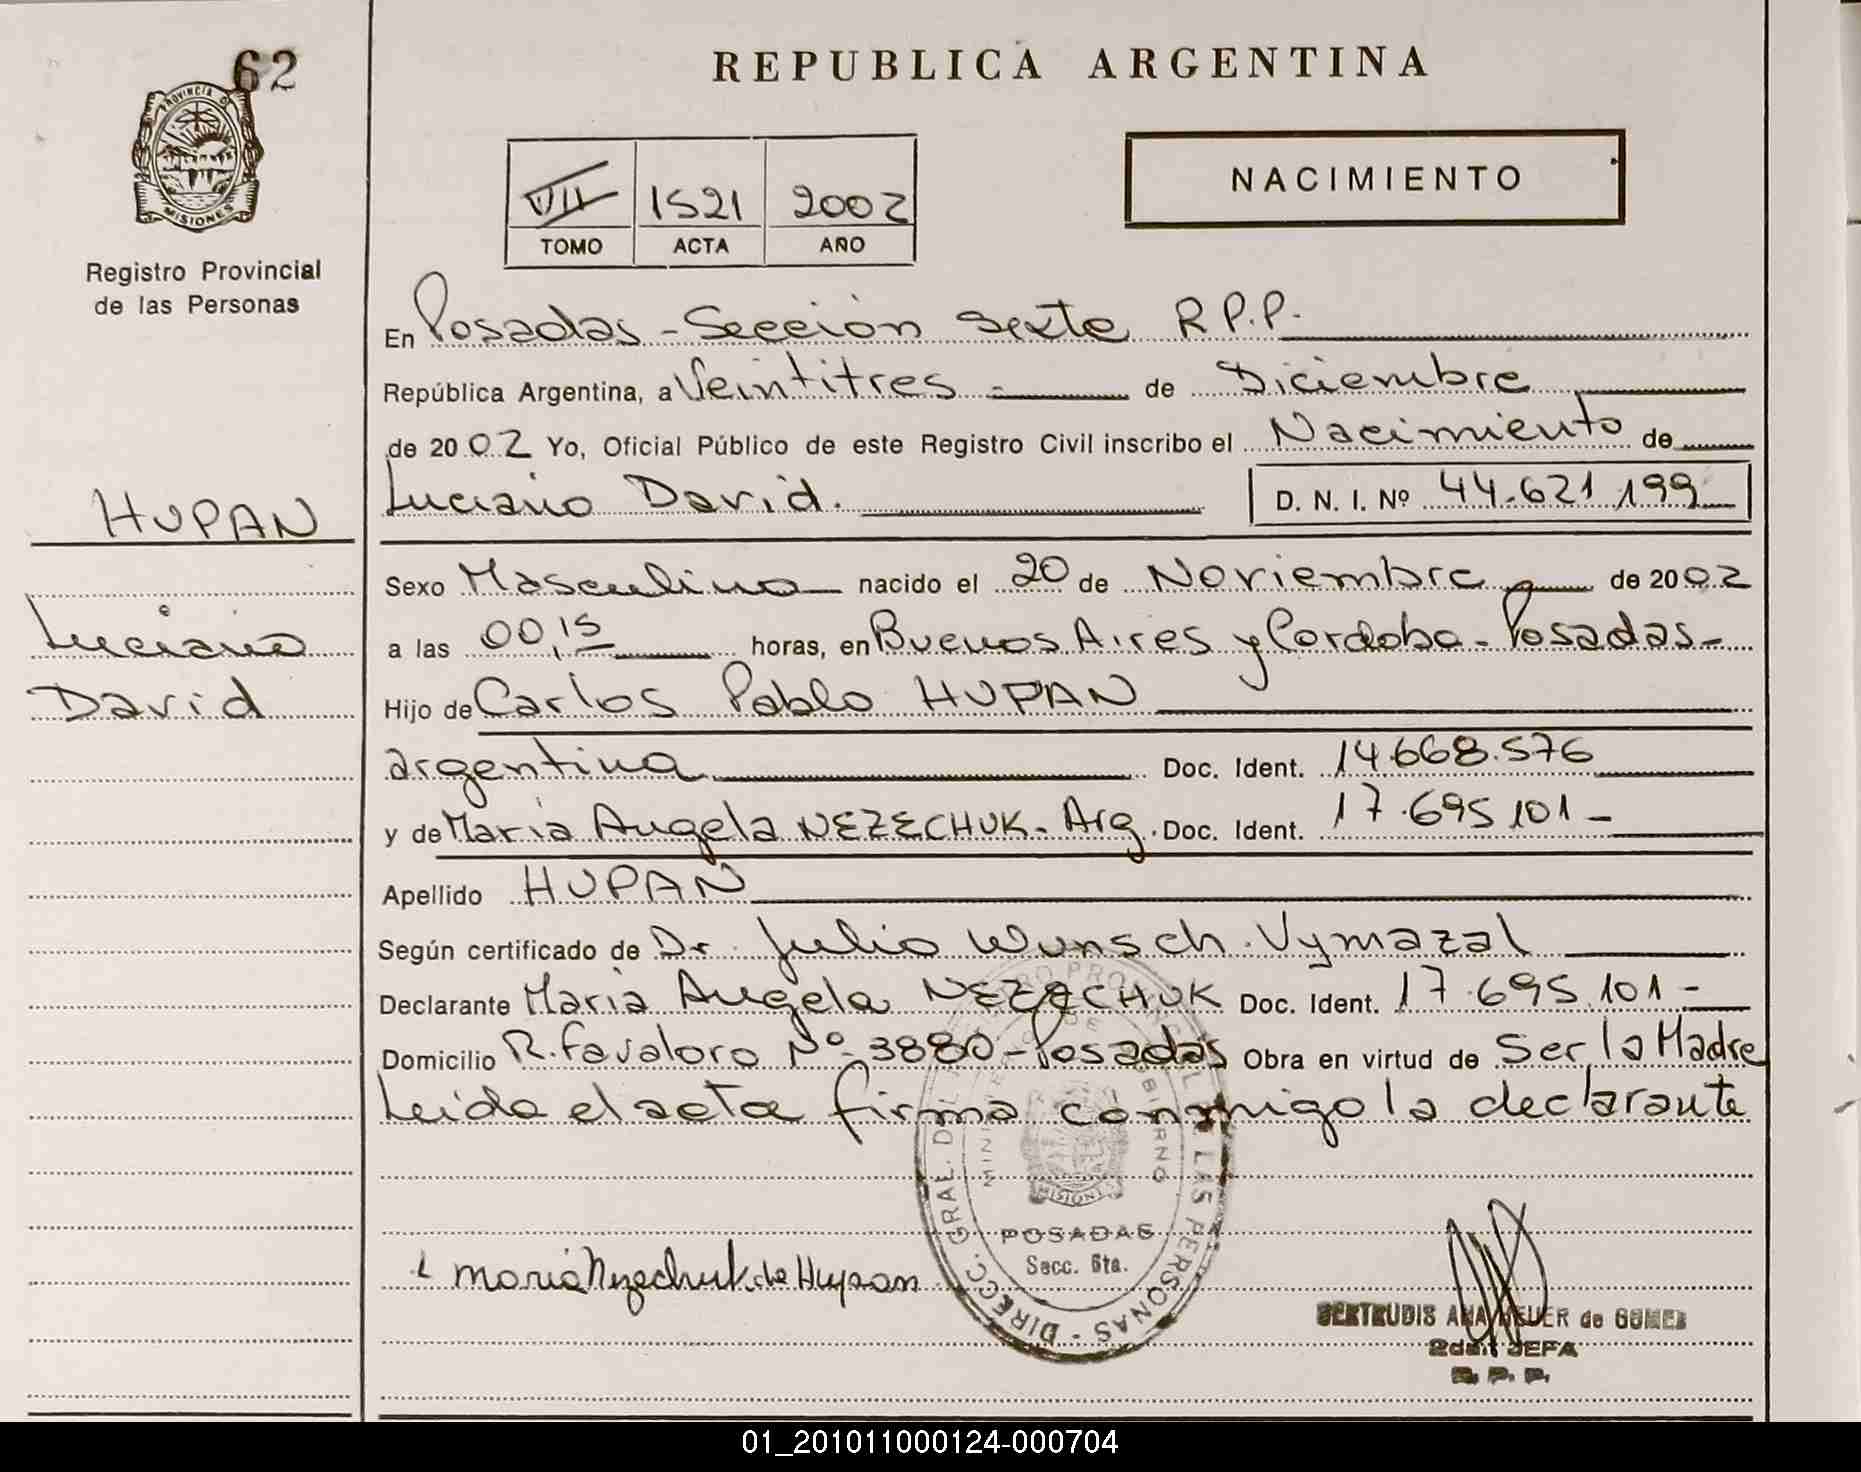 62
PROVINCIA DE
MISIONES
Registro Provincial
de las Personas
HUPAN
Luciano
David
REPUBLICA ARGENTINA
VII 1521 2002
TOMO ACTA AÑO
NACIMIENTO
En Posadas - Sección Sexta R.P.P.
República Argentina, a Veintitres - de Diciembre
de 2002 Yo, Oficial Público de este Registro Civil inscribo el Nacimiento de
Luciano David. D. N. I. Nº 44.621.199
Sexo Masculino nacido el 20 de Noviembre de 2002
a las 00,15 horas, en Buenos Aires y Cordoba - Posadas -
Hijo de Carlos Pablo HUPAN
argentina Doc. Ident. 14.668.576
y de Maria Angela NEZECHUK - Arg. Doc. Ident. 17.695.101 -
Apellido HUPAN
Según certificado de Dr. Julio Wunsch Vymazal
Declarante Maria Angela NEZECHUK Doc. Ident. 17.695.101 -
Domicilio R. Favaloro Nº 3880 - Posadas Obra en virtud de Ser la Madre
Leida el acta firma conmigo la declarante
MISIONES
POSADAS
Secc. 6ta.
DIRECC. GRAL. DEL REGISTRO PROVINCIAL DE LAS PERSONAS -
MINISTERIO DE GOBIERNO
Maria Nezechuk de Hupan
GERTRUDIS ANA MEUER de GOMEZ
2da. JEFA
R. P. P.
01_201011000124-000704